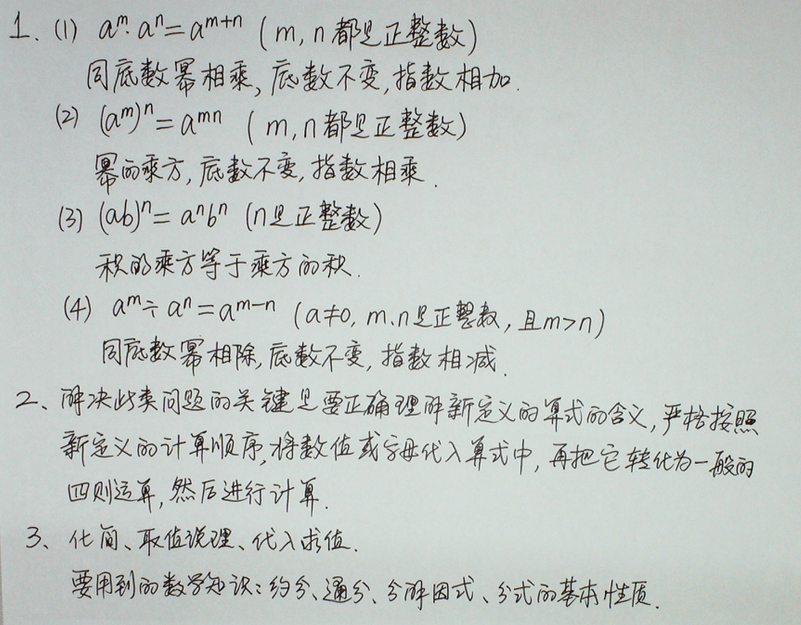 1、(1) aᵐ·aⁿ=aᵐ⁺ⁿ (m,n都是正整数)
同底数幂相乘,底数不变,指数相加.
(2) (aᵐ)ⁿ=aᵐⁿ (m,n都是正整数)
幂的乘方,底数不变,指数相乘.
(3) (ab)ⁿ=aⁿbⁿ (n是正整数)
积的乘方等于乘方的积.
(4) aᵐ÷aⁿ=aᵐ⁻ⁿ (a≠0,m、n是正整数,且m>n)
同底数幂相除,底数不变,指数相减.
2、解决此类问题的关键是要正确理解新定义的算式的含义,严格按照
新定义的计算顺序,将数值或字母代入算式中,再把它转化为一般的
四则运算,然后进行计算.
3、化简、取值说理、代入求值.
要用到的数学知识:约分、通分、分解因式、分式的基本性质.